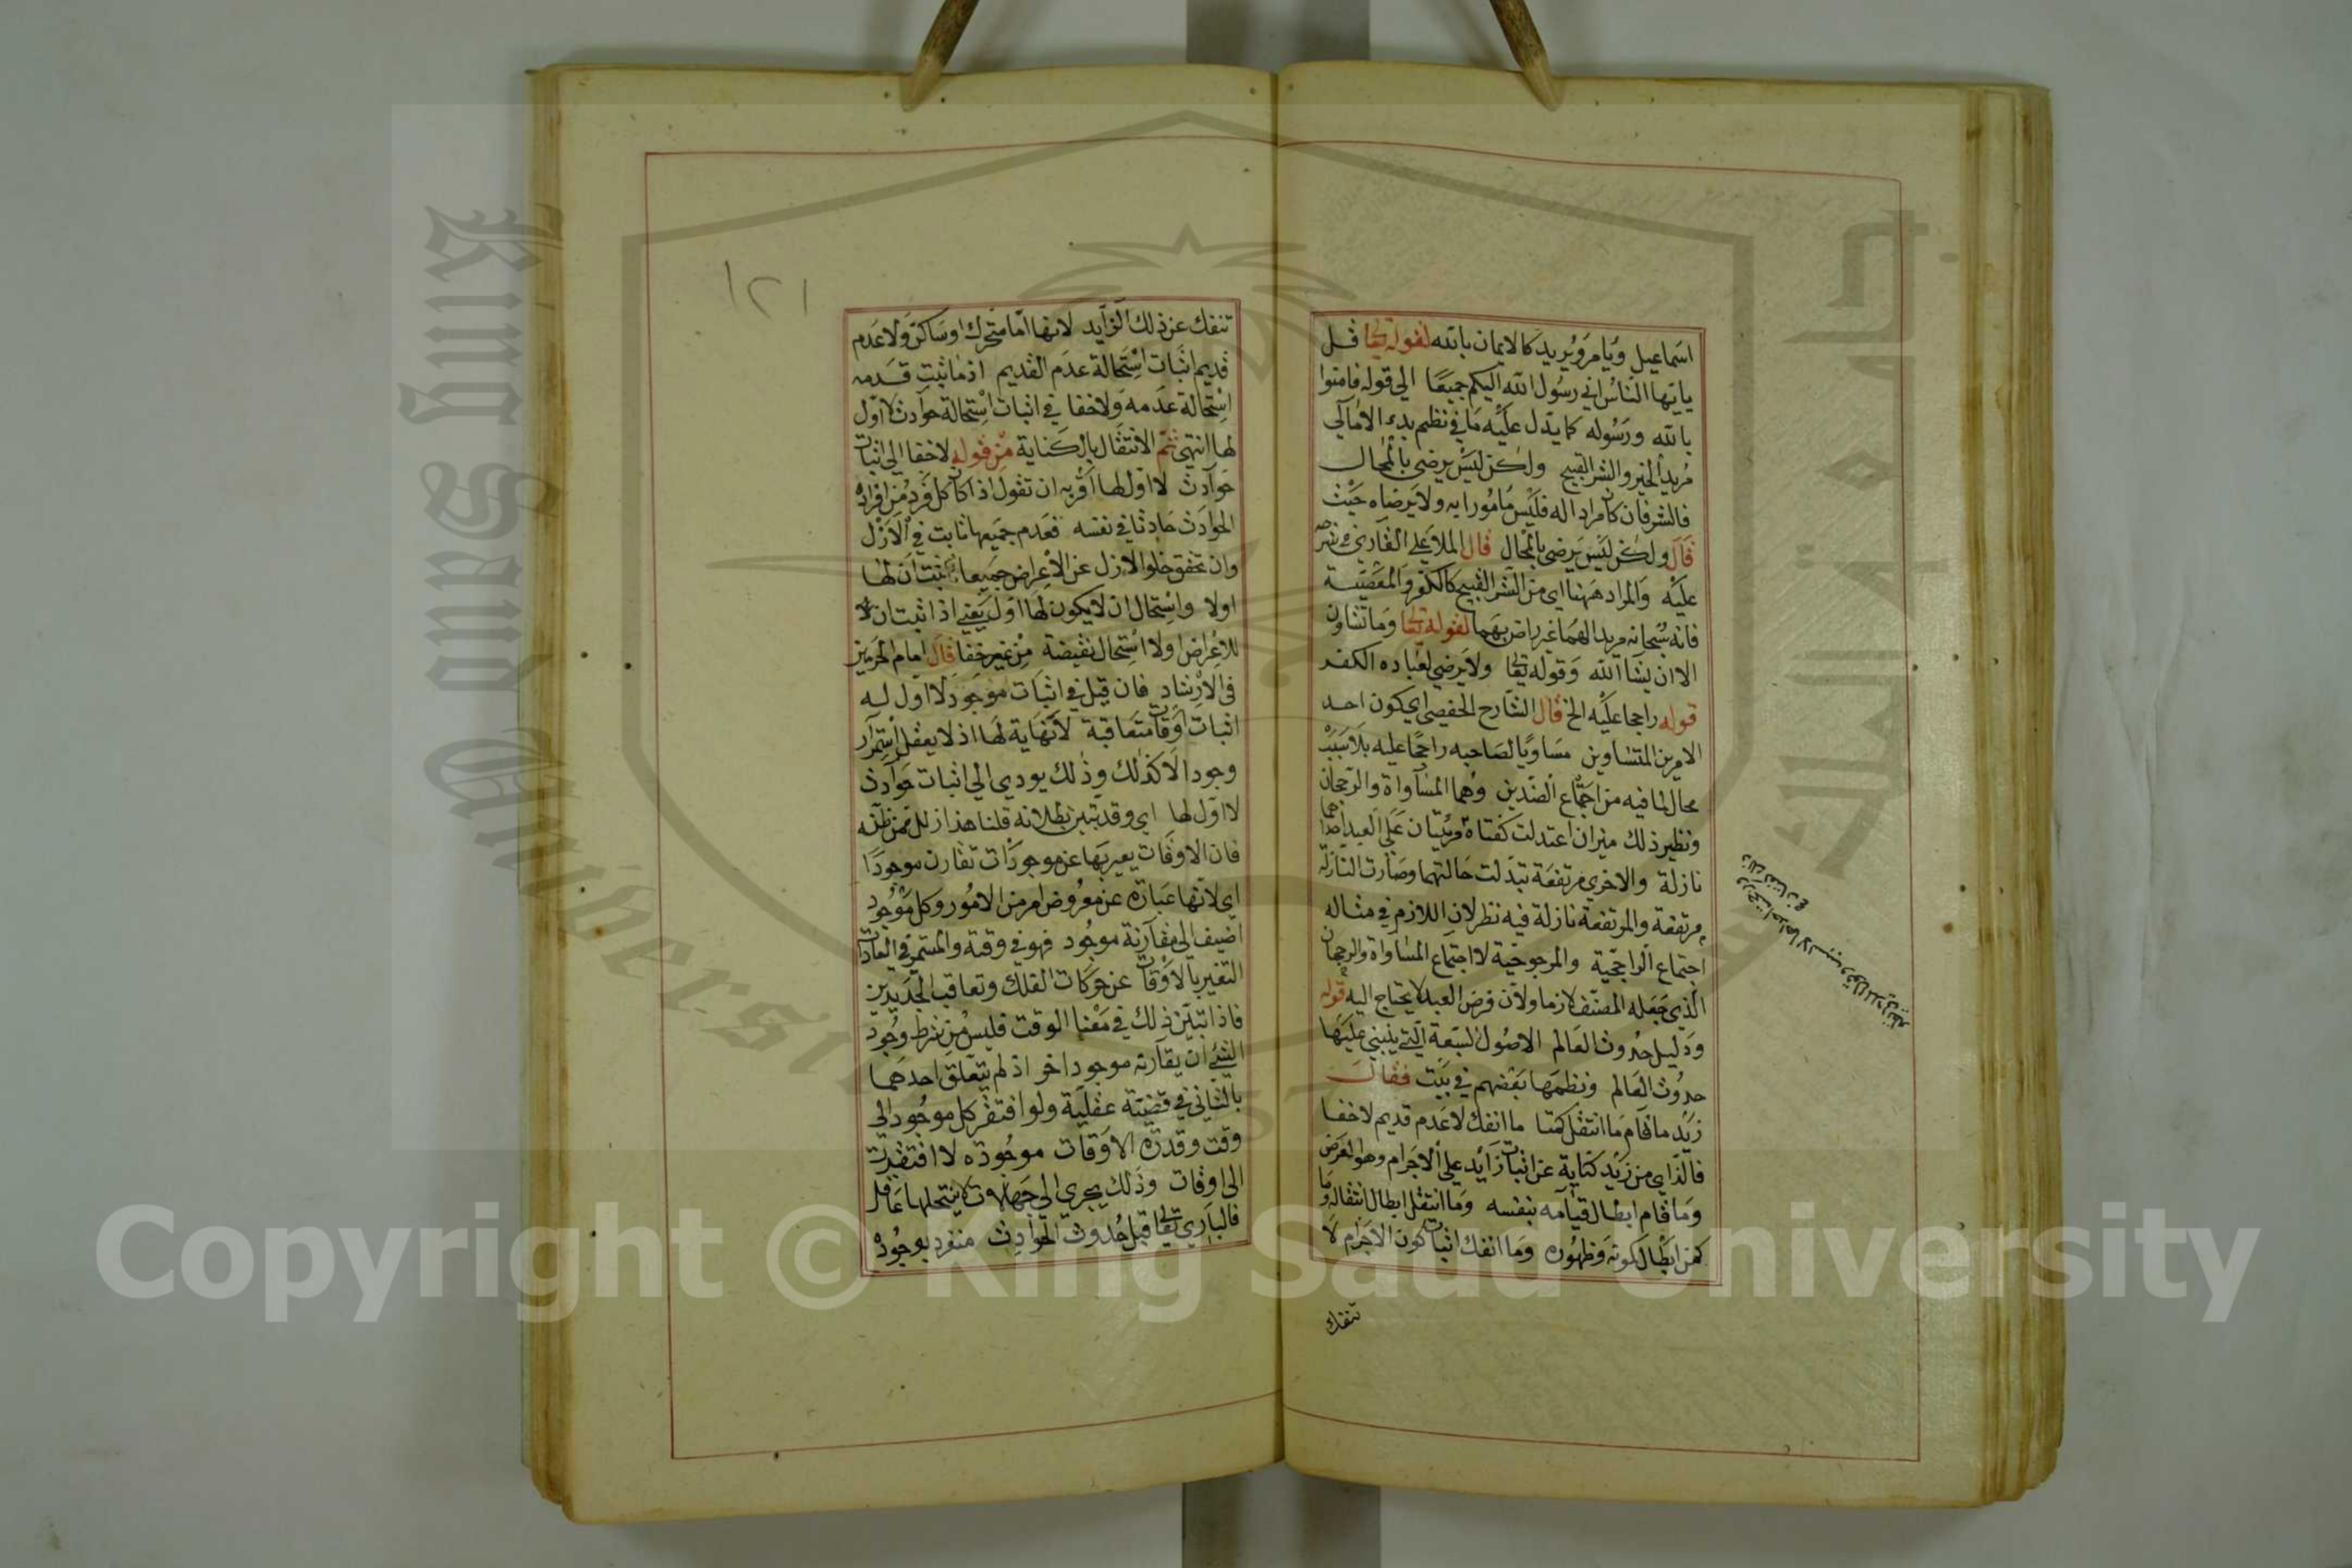 اسماعيل ويامر ويريد كالايمان بالله لقوله تعالى قل
ياايها الناس اني رسول الله اليكم جميعا الي قوله فامنوا
بالله ورسوله كما يدل عليه ما في نظم بدء الامالي
مريد الخير والشر القبيح ولكن ليس يرضي بالمحال
فالشر فان كان مرادا له فليس مامورا به ولا يرضاه حيث
قال ولكن ليس يرضي بالمحال قال الملا علي القاري في شرحه
عليه والمراد ههنا اي من الشر القبيح كالكفر والمعصية
فانه سبحانه مريد لهما غير راض بهما لقوله تعالى وما تشاون
الا ان يشا الله وقوله تعالى ولا يرضي لعباده الكفر
قوله راجحا عليه الخ قال الشارح الحفصي اي يكون احد
الامرين المتساوين مساويا لصاحبه راجحا عليه بلا سبب
محال لما فيه من اجتماع الضدين وهما المساواة والرجحان
ونظير ذلك ميزان اعتدلت كفتاه
نازلة والاخري مرتفعة تبدلت حالتهما وصارت النازلة
مرتفعة والمرتفعة نازلة فيه نظر لان اللازم في مثاله
اجتماع الراجحية والمرجوحية لا اجتماع المساواة والرجحان
الذي جعله المصنف لازما ولان فرض العبد لا يحتاج اليه قوله
ودليل حدوث العالم الاصول السبعة التي ينبني عليها
حدوث العالم ونظمها بعضهم في بيت فقال
زيد ما قام ما انتقل كمنا ما انفك لا عدم قديم لا خفا
فالزاي من زيد كناية عن اثبات زائد علي الاجرام وهو العرض
وما قام ابطال قيامه بنفسه وما انتقل ابطال انتقاله وما
كمن ابطال كمونه وظهوره وما انفك اثبات كون الاجرام لا
تنفك
١٢١
تنفك عن ذلك الزايد لانها اما متحرك او ساكن ولا عدم
قديم اثبات استحالة عدم القديم اذ ما ثبت قدمه
استحالة عدمه ولا خفا في اثبات استحالة حوادث لا اول
لها انتهي ثم الانتقال بالكناية من قوله لا خفا الي اثبات
حوادث لا اول لها اقربه ان تقول اذا كان كل فرد من افراد
الحوادث حادثا في نفسه فعدم جميعها ثابت في الازل
وان تحقق خلوا الازل عن الاعراض جميعا ثبت ان لها
اولا واستحال ان لا يكون لها اول يعني اذا ثبت ان
للاعراض اولا استحال نقيضة من غير خفا قال امام الحرمين
في الارشاد فان قيل في اثبات موجود لا اول له
اثبات اوقات متعاقبة لا نهاية لها اذ لا يعقل استمرار
وجود الا كذلك وذلك يودي الي اثبات حوادث
لا اول لها اي وقد تبين بطلانه قلنا هذا زلل ممن ظنه
فان الاوقات يعبر بها عن موجودات تقارن موجودا
اي لانها عبارة عن معروض امر من الامور وكل موجود
اضيف الي مقارنة موجود فهو في وقته والمستمر في العادات
التغير بالاوقات عن حركات الفلك وتعاقب الجديدين
فاذا تبين ذلك في معنا الوقت فليس من شرط وجود
الشئ ان يقارنه موجود اخر اذ لم يتعلق احدهما
بالثاني في قضية عقلية ولو افتقر كل موجود الي
وقت وقدرت الاوقات موجودة لا افتقرت
الي اوقات وذلك يجري الي جهالات لا ينتحلها عاقل
فالباري تعالى قبل حدوث الحوادث منفرد بوجوده
Copyright © King Saud University
King Saud University